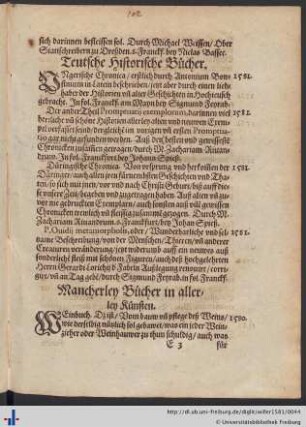 sich darinnen befleissen sol. Durch Michael Waissen / Ober
Stattschreibern zu Dreßden. 8. Franckf. bey Niclas Bassee.
Teutsche Historische Bücher.
VNgerische Chronica / erstlich durch Antonium Bon- 1581.
finium in Latein beschrieben / jetzt aber durch einen lieb-
haber der Historien vñ alter Geschichten in Hochteutsch
gebracht. In fol. Franckf. am Mayn bey Sigmund Feyrab.
Der ander Theil Promptuarij exemplorum, darinnen viel 1581.
herrliche vñ schöne Historien allerley alten vnd neuwen Exem-
pel verfasset seind / dergleichẽ im vorigen vñ ersten Promptua-
rio gar nicht gefunden werden. Auß den besten vnd
Chronicken zusamen getragen durch M. Zachariam
druum. In fol. Franckfurt bey Johann Spieß.
Düringische Chronica. Von vrsprung vnd herkom̃en der 1581.
Düringer / auch allen jren fürnembsten Geschichten vnd Tha-
ten / so sich mit jnen / vor vnd nach Christi Geburt / biß auff die-
se vnsere Zeit / begeben vnd zugetragen haben. Auß allen vñ zu-
vor nie gedruckten Exemplarn / auch sonsten auß vil gewissen
Chronicken trewlich vñ fleissig zusam̃en gezogen. Durch M.
Zachariam Riuandrum. 8. Franckfurt bey Johan Spieß.
P. Ouidij metamorphosis, oder / Wunderbarliche vnd selt- 1581.
zame Beschreibung / von der Menschen / Thieren / vñ anderer
Creaturen veränderung / jetzt widerumb auff ein neuwes auß
sonderliche fleiß mit schönen Figuren / auch deß hochgelehrten
Herrn Gerardi Lorichij
gus / vñ an Tag gebẽ / durch Sigmund Feyrab. in fol. Franckf.
Mancherley Bücher in aller-
ley Künsten.
WEinbuch. Dz ist / Vom bauw vñ pflege deß Weins / 1580.
wie derselbig nützlich sol gebawet / was ein jeder Wein-
zieher oder Weinhauwer zu thun schuldig / auch was
E 3 für
http://dl.ub.uni-freiburg.de/diglit/willer1581/0044
Universitätsbibliothek Freiburg